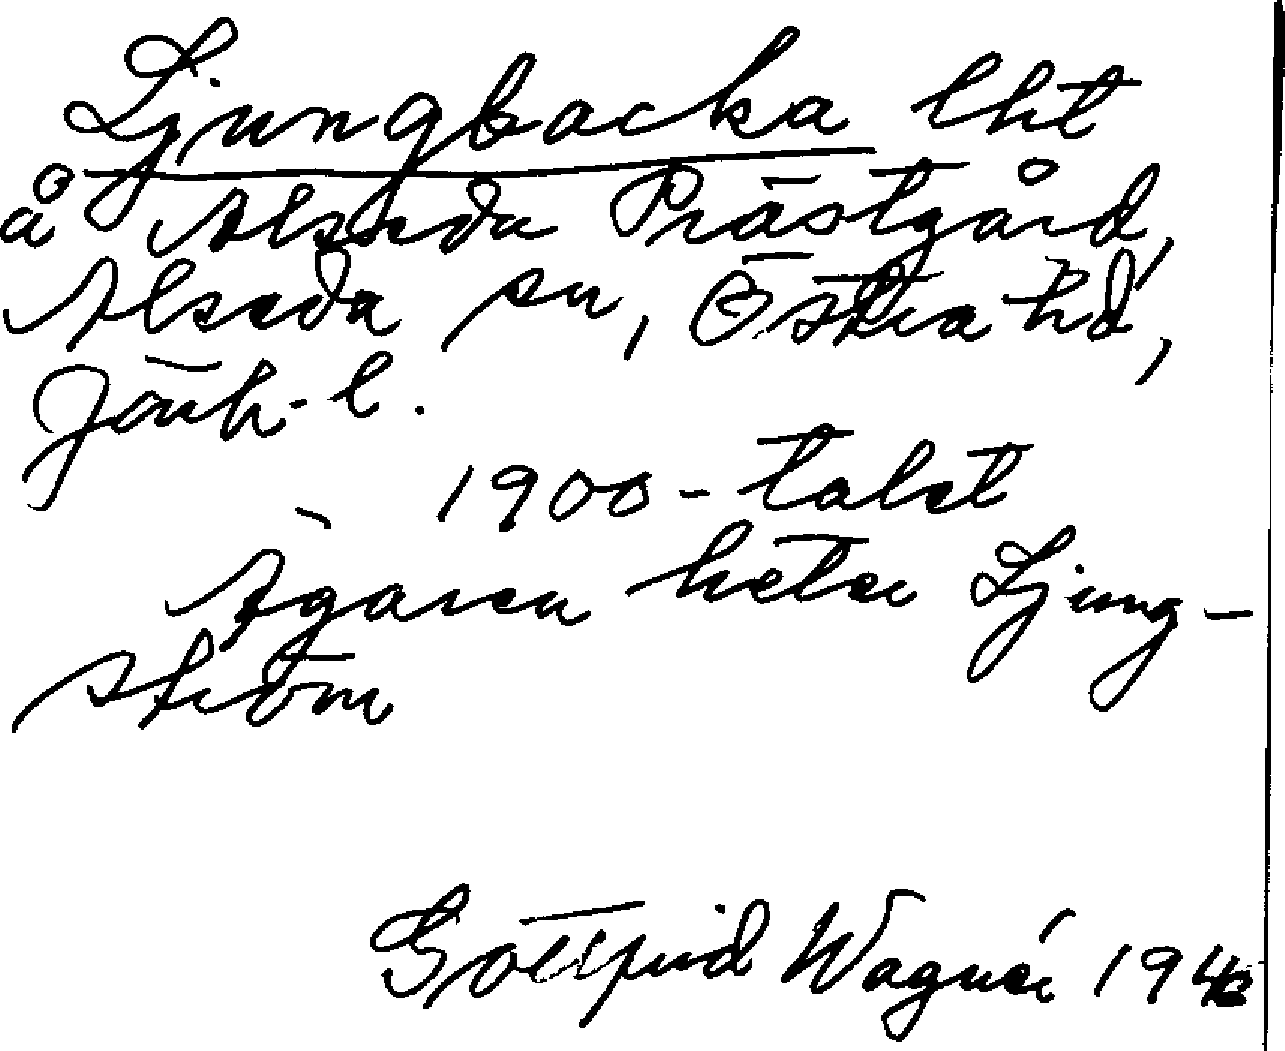 Ljungbacka lht
å Alseda Prästgård,
Alseda sn, Östra hd,
Jönk. l.
1900-talet
Ägaren heter Ljung-
ström
Gottfrid Wagnér